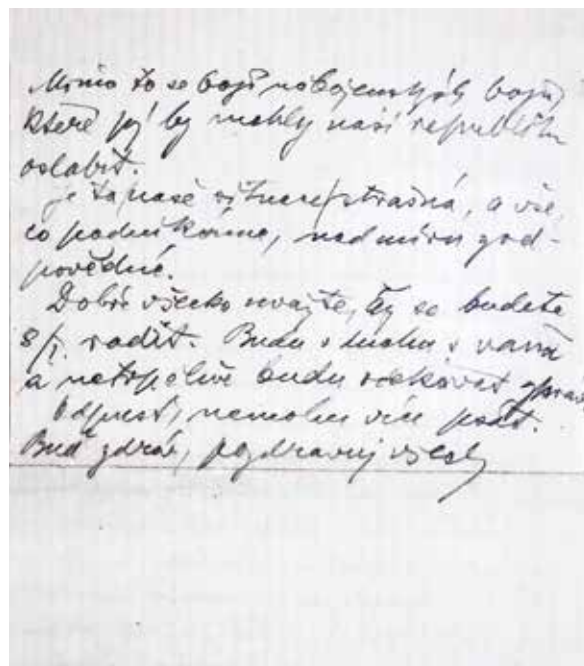 Mimo to se bojí náboženských bojů,
které prý by mohly naši republiku
oslabit.
Je to naše situace strašná, a vše,
co podnikáme, nadmíru zod-
povědné.
Dobře všecko uvažte, až se budete
8/I. radit. Budu v duchu s vámi
a netrpělivě budu očekávat zpráv
Odpusť, nemohu více psát.
Buď zdráv, pozdravuj všech